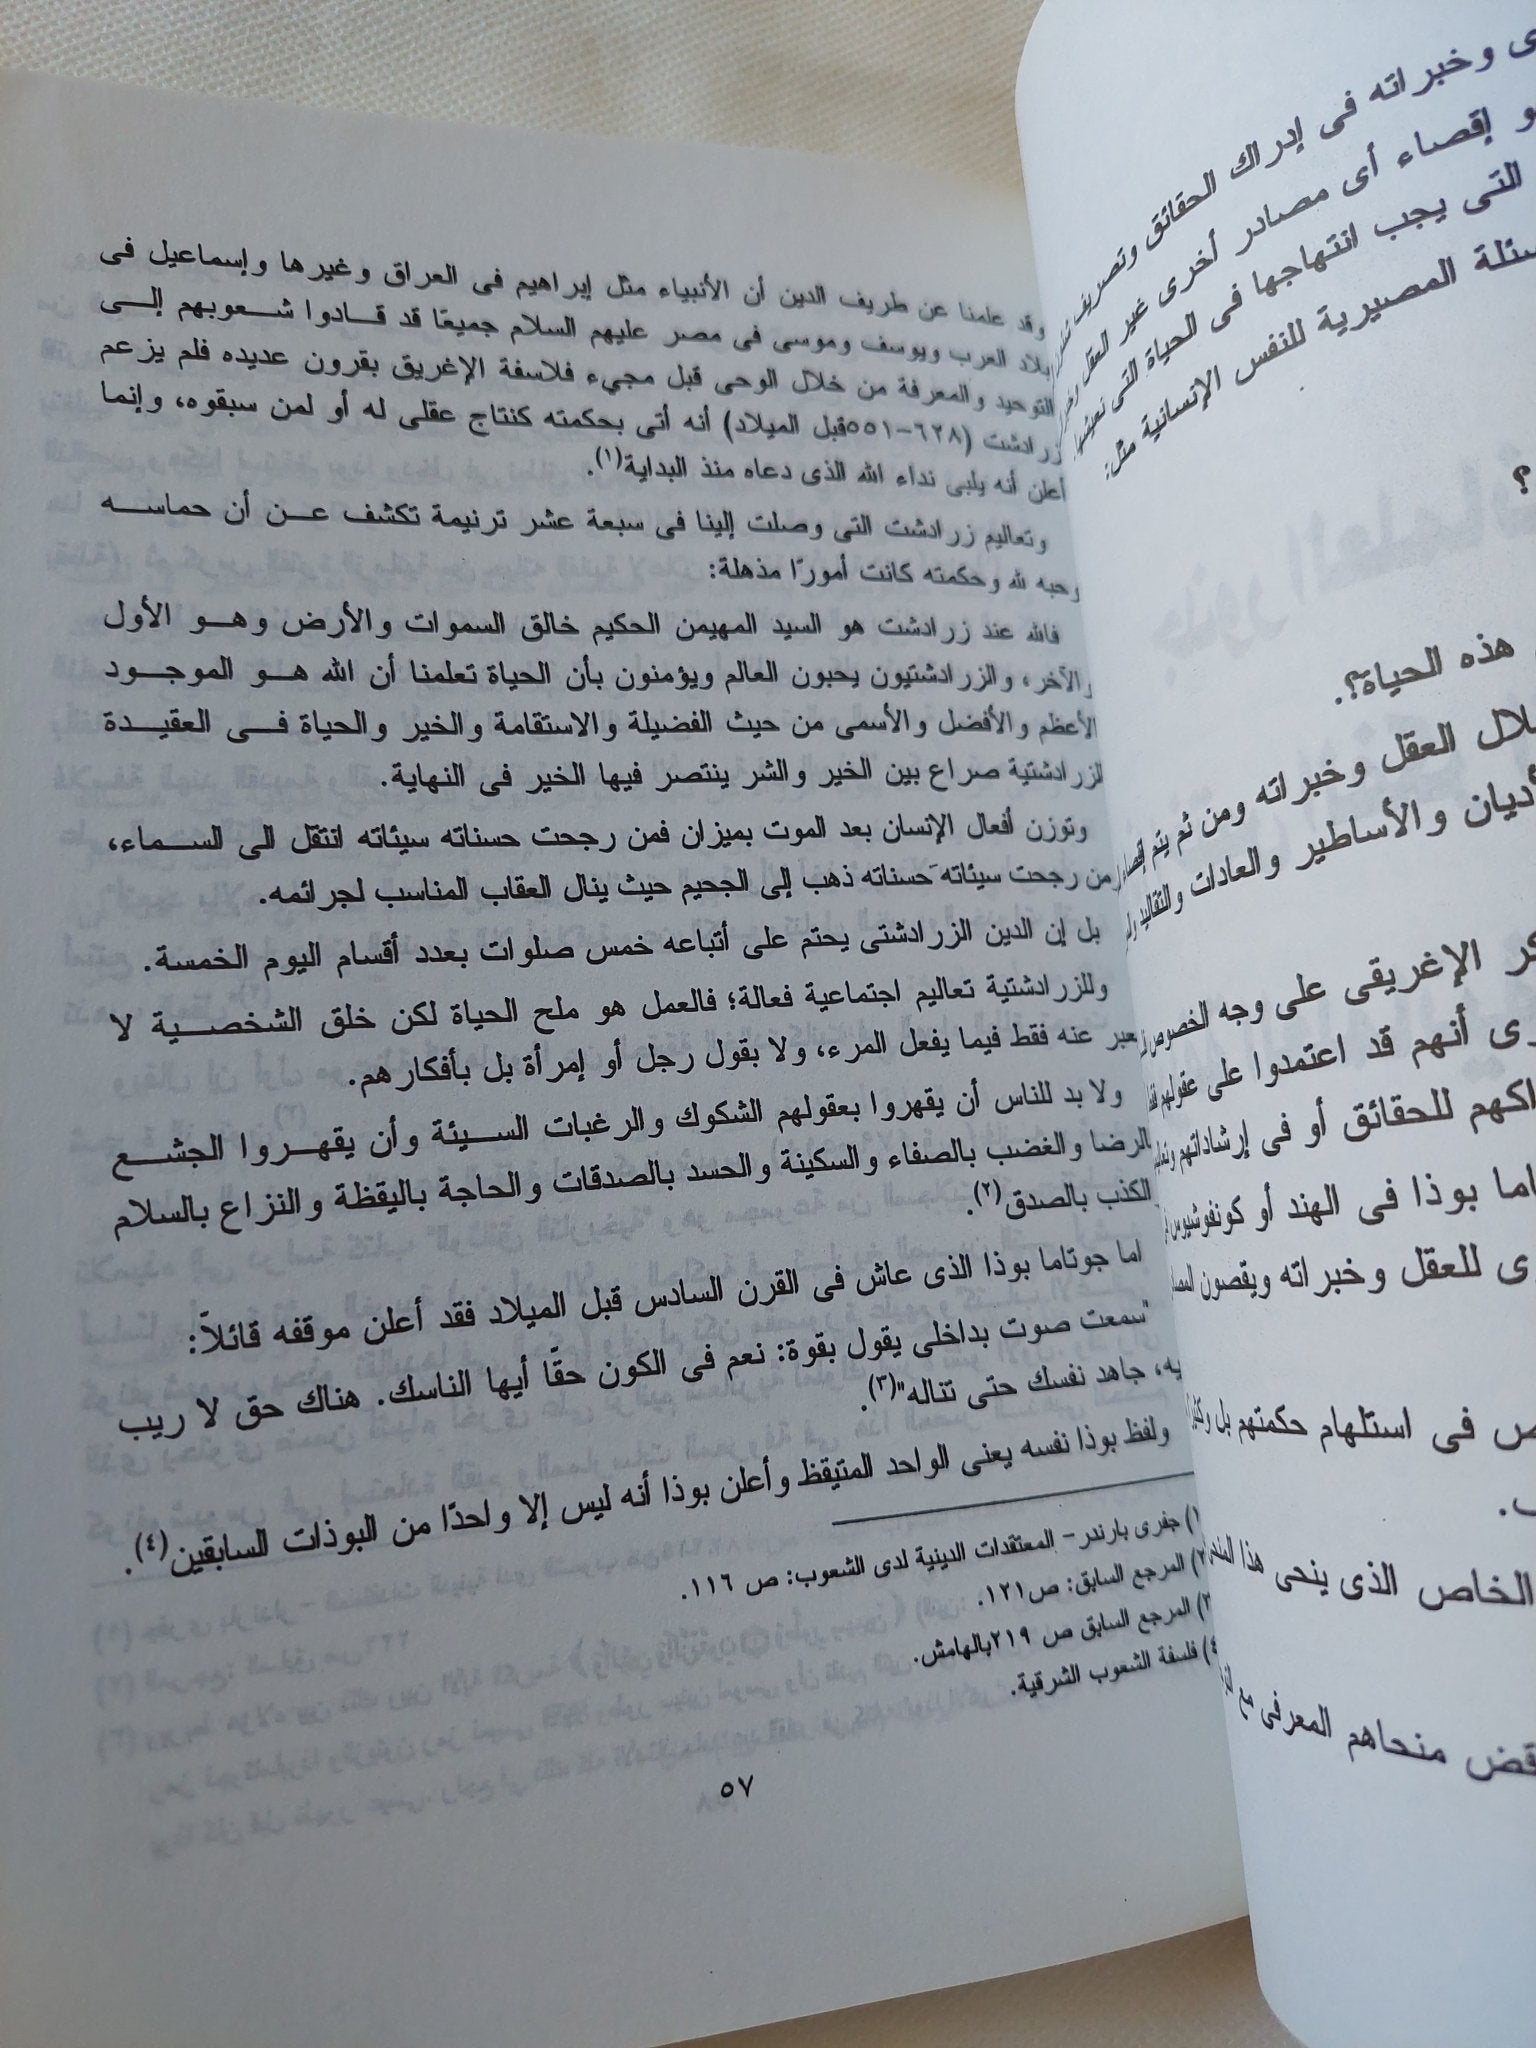 وقد علمنا عن طريف الدين أن الأنبياء مثل إبراهيم فى العراق وغيرها وإسماعيل فى
بلاد العرب ويوسف وموسى فى مصر عليهم السلام جميعًا قد قــادوا شــعوبهم إلــى
التوحيد والمعرفة من خلال الوحى قبل مجيء فلاسفة الإغريق بقرون عديده فلم يزعم
زرادشت (٦٢٨-٥٥١قبل الميلاد) أنه أتى بحكمته كنتاج عقلى له أو لمن سبقوه، وإنما
أعلن أنه يلبى نداء الله الذى دعاه منذ البداية(١).
وتعاليم زرادشت التى وصلت إلينا فى سبعة عشر ترنيمة تكشف عــن أن حماســه
وحبه لله وحكمته كانت أمورًا مذهلة:
فالله عند زرادشت هو السيد المهيمن الحكيم خالق السموات والأرض وهــو الأول
والآخر، والزرادشتيون يحبون العالم ويؤمنون بأن الحياة تعلمنا أن الله هــو الموجــود
الأعظم والأفضل والأسمى من حيث الفضيلة والاستقامة والخير والحياة فــى العقيــدة
الزرادشتية صراع بين الخير والشر ينتصر فيها الخير فى النهاية.
وتوزن أفعال الإنسان بعد الموت بميزان فمن رجحت حسناته سيئاته انتقل الى الســماء،
من رجحت سيئاته حسناته ذهب إلى الجحيم حيث ينال العقاب المناسب لجرائمه.
بل إن الدين الزرادشتى يحتم على أتباعه خمس صلوات بعدد أقسام اليوم الخمسة.
وللزرادشتية تعاليم اجتماعية فعالة؛ فالعمل هو ملح الحياة لكن خلق الشخصــية لا
يعبر عنه فقط فيما يفعل المرء، ولا بقول رجل أو إمرأة بل بأفكارهم.
ولا بد للناس أن يقهروا بعقولهم الشكوك والرغبات الســيئة وأن يقهــروا الجشــع
بالرضا والغضب بالصفاء والسكينة والحسد بالصدقات والحاجة باليقظة والنزاع بالسلام
الكذب بالصدق(٢).
اما جوتاما بوذا الذى عاش فى القرن السادس قبل الميلاد فقد أعلن موقفه قائلاً:
"سمعت صوت بداخلى يقول بقوة: نعم فى الكون حقًا أيها الناسك. هناك حق لا ريب
يه، جاهد نفسك حتى تناله"(٣).
ولفظ بوذا نفسه يعنى الواحد المتيقظ وأعلن بوذا أنه ليس إلا واحدًا من البوذات السابقين(٤).
١) جفرى بارندر- المعتقدات الدينية لدى الشعوب: ص ١١٦.
٢) المرجع السابق: ص١٢١.
٣) المرجع السابق ص ٢١٩بالهامش.
٤) فلسفة الشعوب الشرقية.
٥٧
ى وخبراته فى إدراك الحقائق وتصريف
و إقصاء أى مصادر أخرى غير العقل
التى يجب انتهاجها فى الحياة التى نعيشها
سئلة المصيرية للنفس الإنسانية مثل:
؟
هذه الحياة؟.
لال العقل وخبراته ومن ثم يتم
أديان والأساطير والعادات والتقاليد
كر الإغريقى على وجه الخصوص
رى أنهم قد اعتمدوا على عقولهم
اكهم للحقائق أو فى إرشاداتهم
اما بوذا فى الهند أو كونفوشيوس
ى للعقل وخبراته ويقصون
ص فى استلهام حكمتهم بل
الخاص الذى ينحى هذا
قض منحاهم المعرفى مع